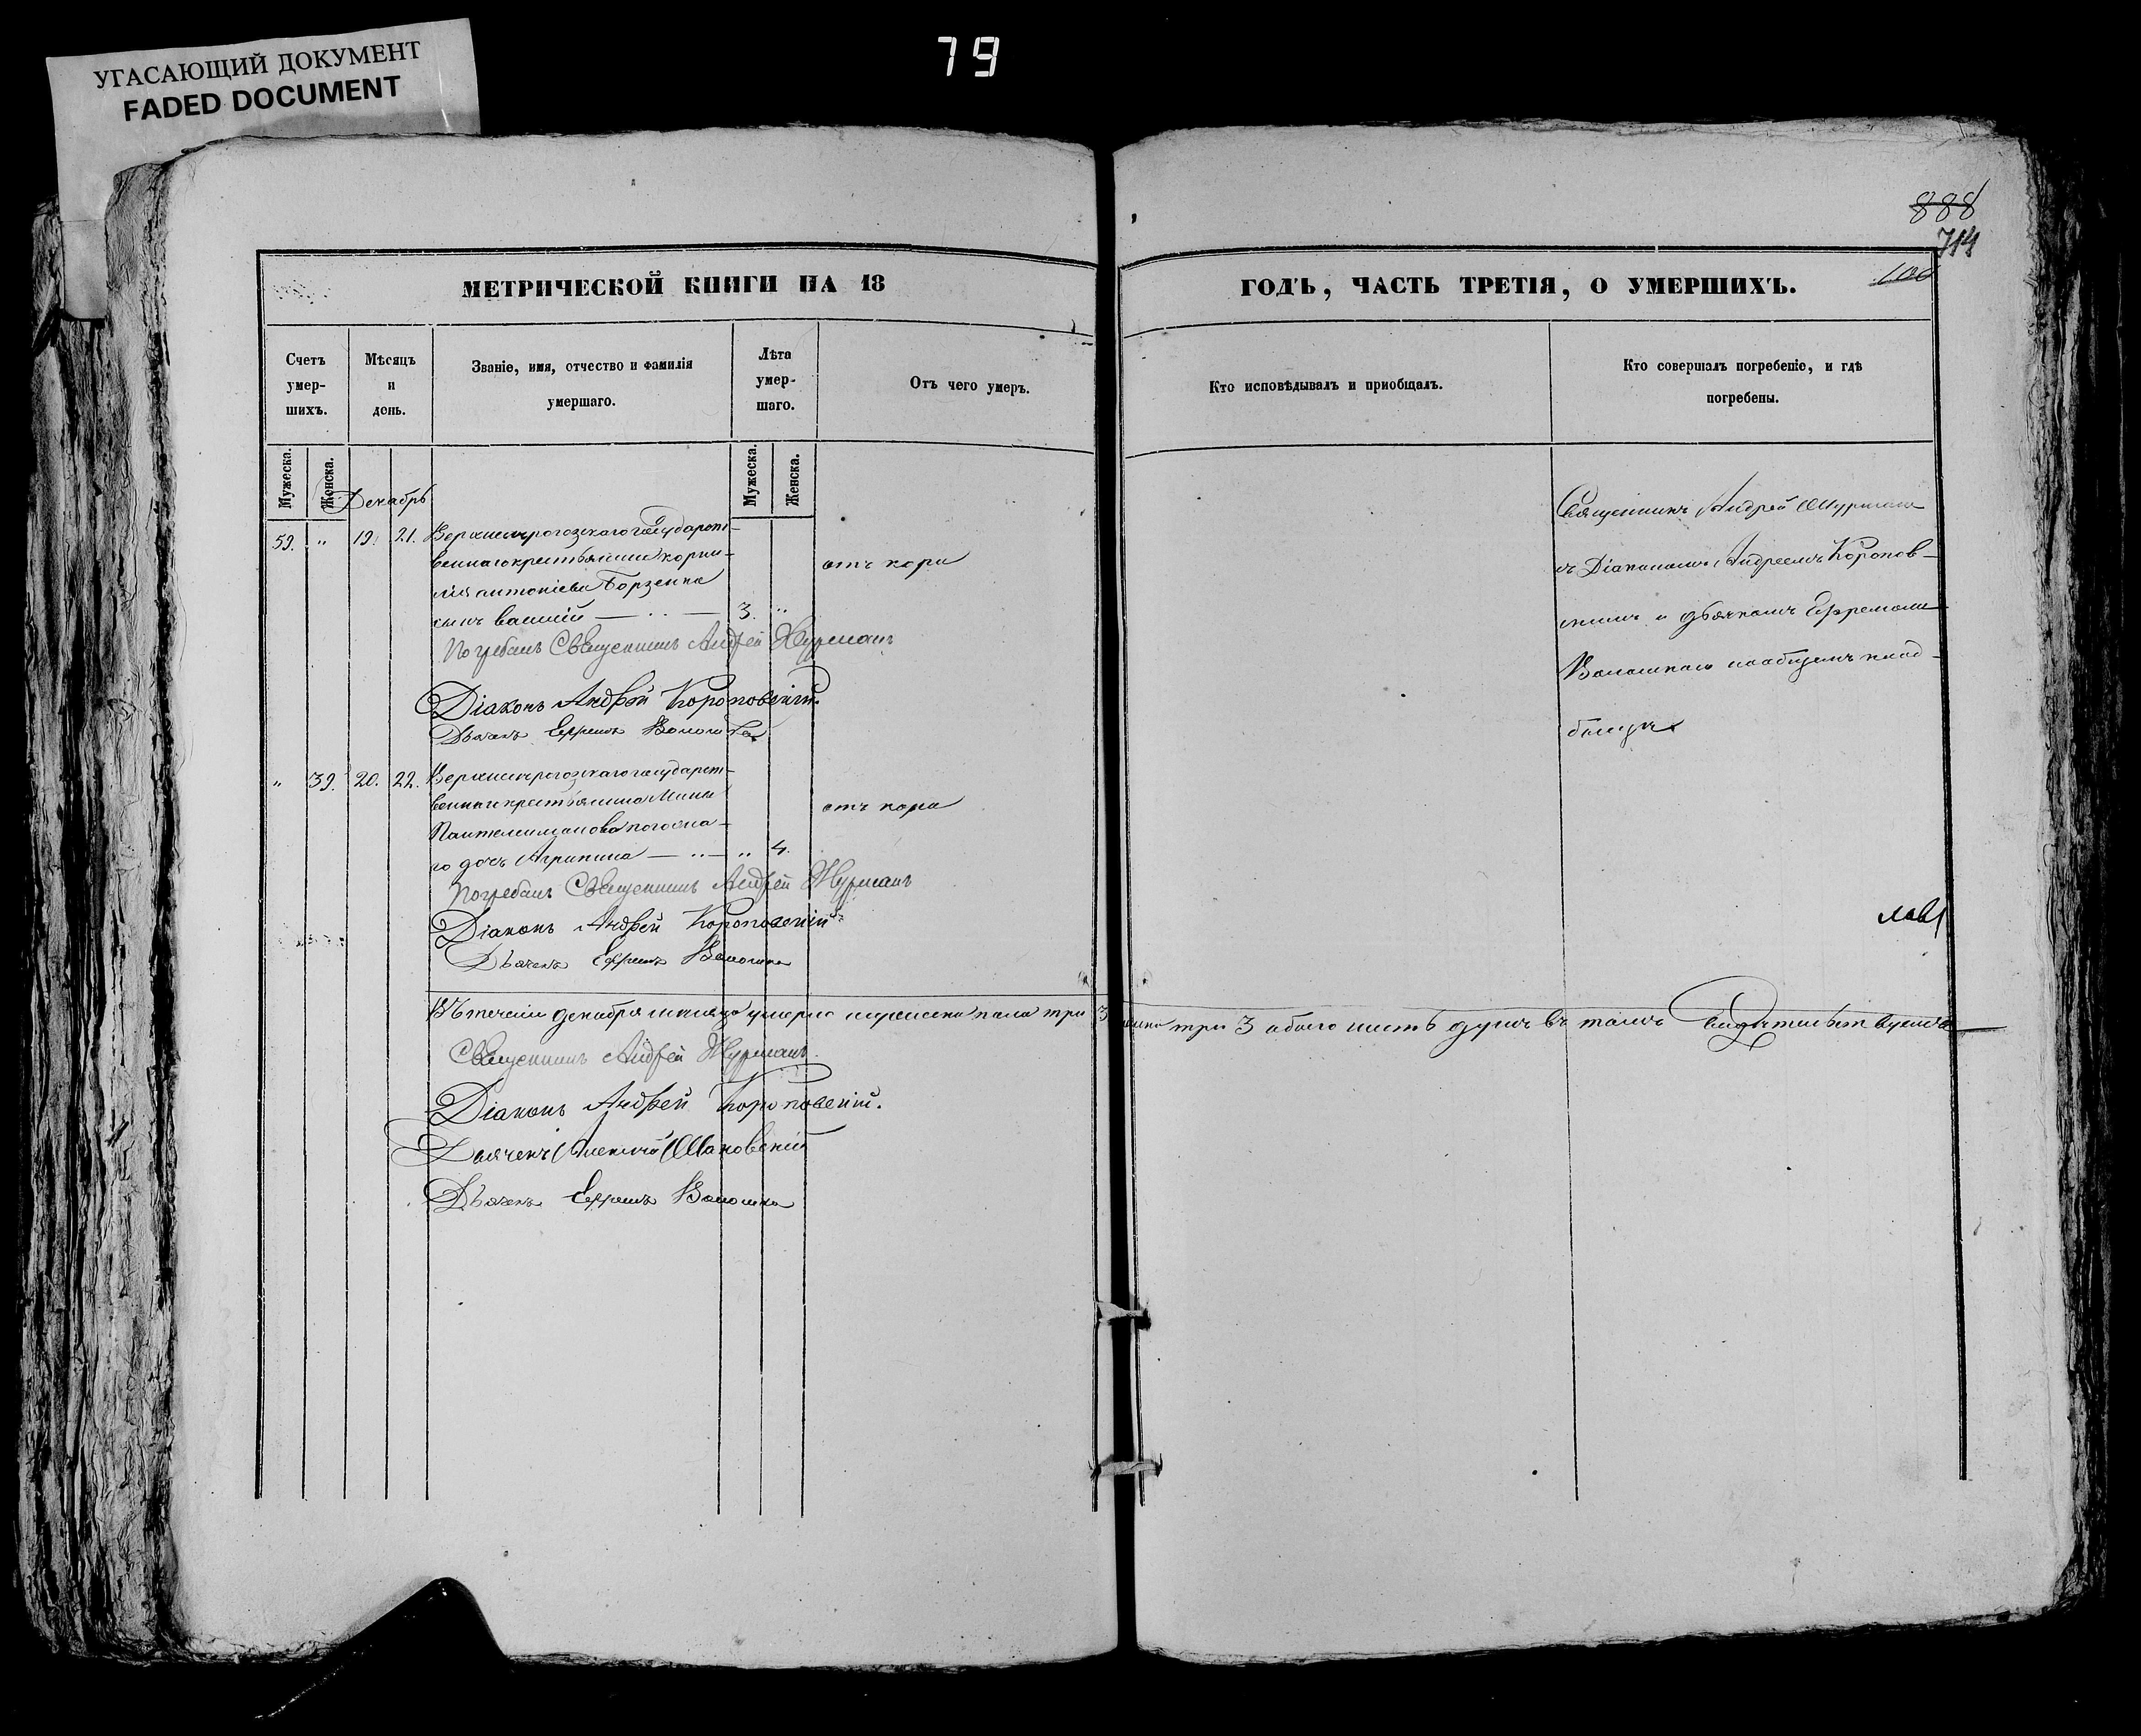 УГАСАЮЩИЙ ДОКУМЕНТ
FADED DOCUMENT
79
888
714
100
МЕТРИЧЕСКОЙ КНИГИ НА 18
ГОДЪ, ЧАСТЬ ТРЕТІЯ, О УМЕРШИХЪ.
Счетъ умер-шихъ.
Мѣсяцъ и день.
Званіе, имя, отчество и фамилія умершаго.
Лѣта умер-шаго.
Отъ чего умеръ.
Кто исповѣдывалъ и пріобщалъ.
Кто совершалъ погребеніе, и гдѣ погребены.
Мужеска.
Женска.
Мужеска.
Женска.
Декабрь
59. " 19. 21. Верхнерогозскаго государст-
веннаго крестьянина корни-
лія антоніева Борзенка
сынъ васиій — 3. "
отъ кори
Погребалъ Священникъ Андрей Журманъ
Діаконъ Андрей Короповскій.
Дьячекъ Ефремъ Волошка
Священникъ Андрей Журманъ
съ Діакономъ Андреемъ Коропов-
скимъ и дьячкомъ Ефремомъ
Волошкою наобщемъ клад-
бищѣ
" 39. 20. 22. Верхнерогозскаго государст-
веннаго крестьянина Мины
Пантелимонова
го дочь Агрипина — " 4.
отъ кори
Погребалъ Священникъ Андрей Журманъ
Діаконъ Андрей Короповскій
Дьячекъ Ефремъ Волошка
Въ теченіи декабря месяца умерло мужеска пола три 3 женска три 3 обоего шесть душъ въ томъ свидѣтельствуемъ
Священникъ Андрей Журманъ
Діаконъ Андрей Короповскій.
Дьячекъ Алексѣй Маковскій
Дьячекъ Ефремъ Волошка